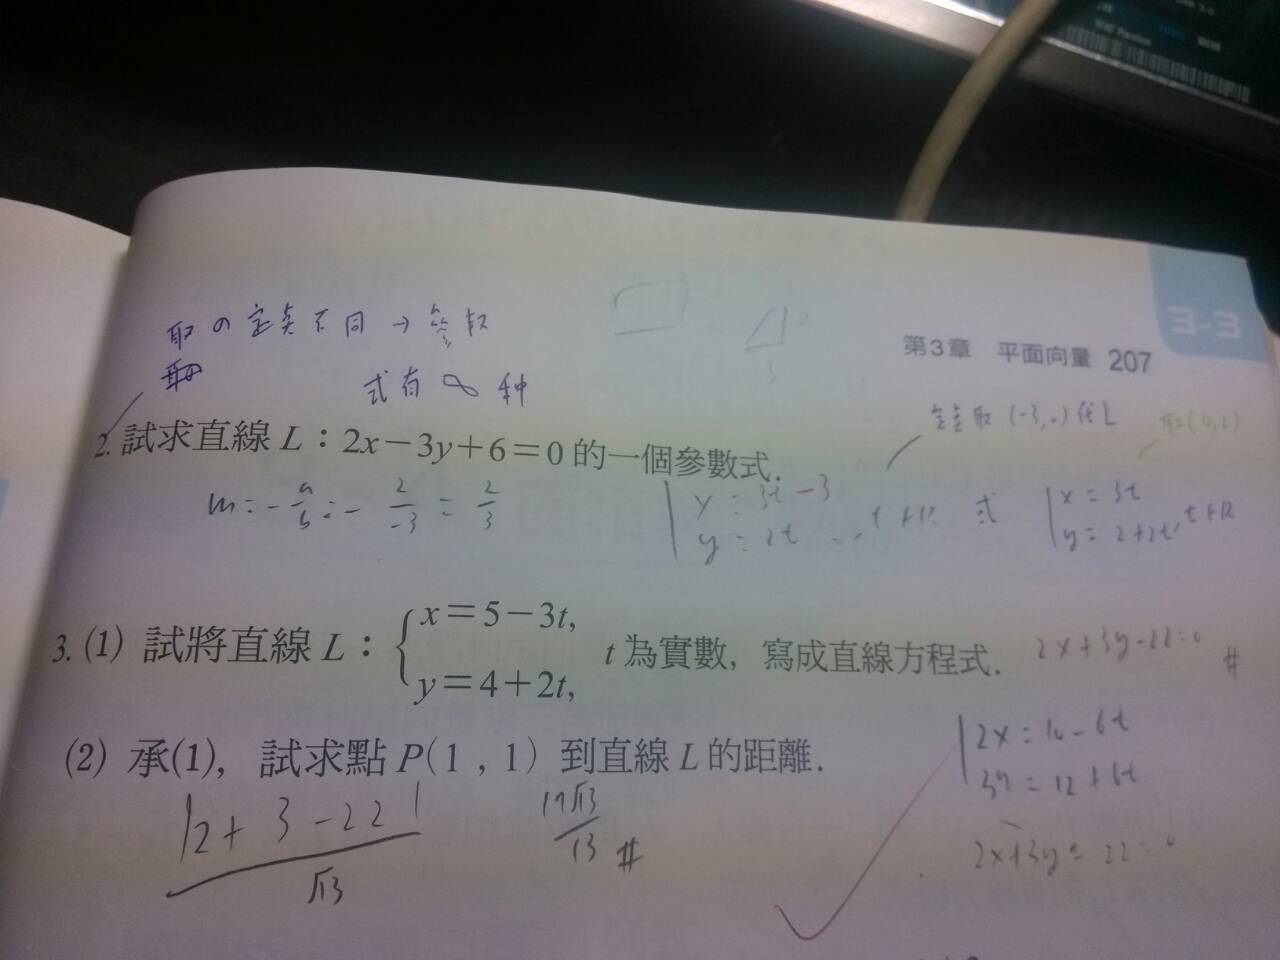 3-3
第3章 平面向量 207
取の定點不同→參數
式有∞種
定點取(-3,0)代L
取(0,2)
2. 試求直線 L：2x－3y＋6＝0 的一個參數式.
m = - a/b = - 2/-3 = 2/3
x = 3t - 3
y = 2t
, t ∈ R 或
x = 3t
y = 2+2t, t ∈ R
3. (1) 試將直線 L： { x＝5－3t,
y＝4＋2t,
t 為實數，寫成直線方程式.
2x+3y-22=0 #
(2) 承(1)，試求點 P(1 , 1) 到直線 L 的距離.
2x = 10 - 6t
3y = 12 + 6t
2x+3y - 22 = 0
|2 + 3 - 22| / √13
17√13 / 13 #